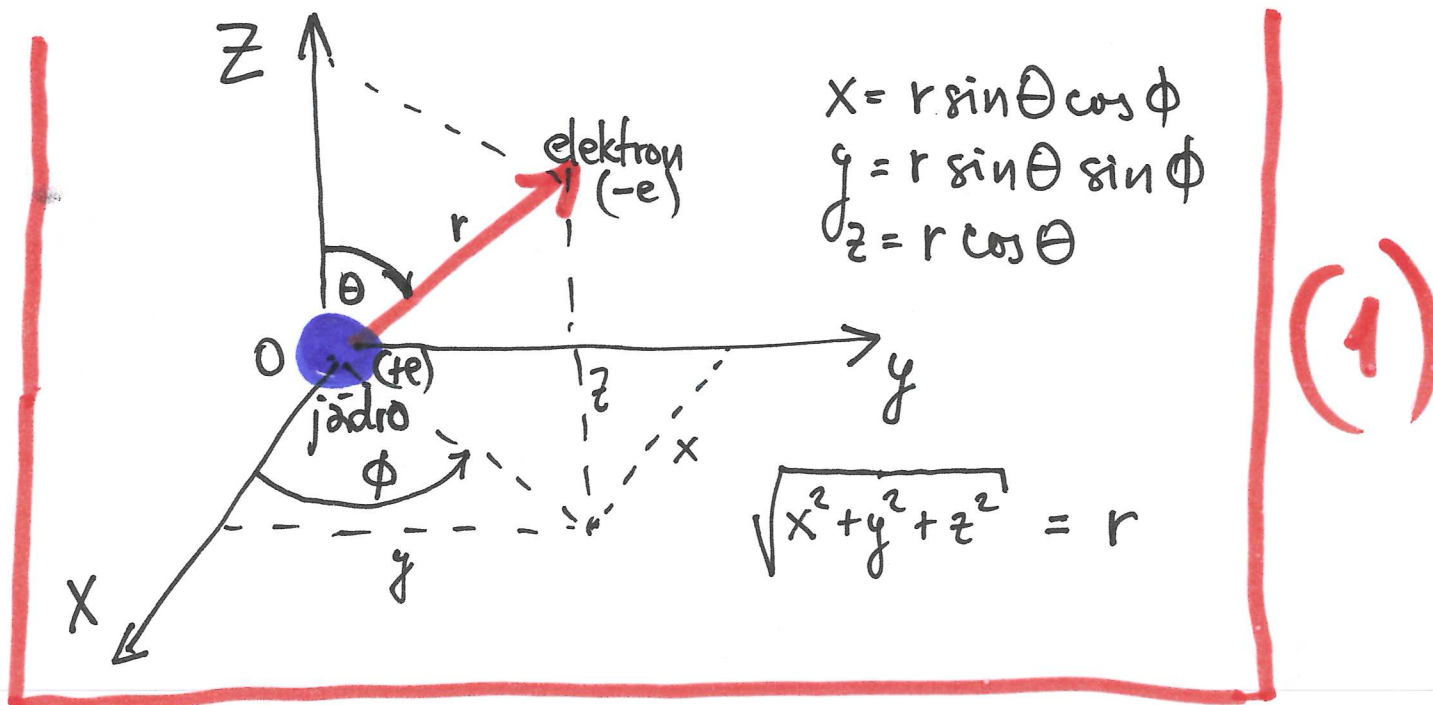 Z
elektron
(-e)
r
θ
O
(+e)
jádro
ϕ
z
x
y
y
X
x = r sinθ cosϕ
y = r sinθ sinϕ
z = r cosθ
√x²+y²+z² = r
(1)